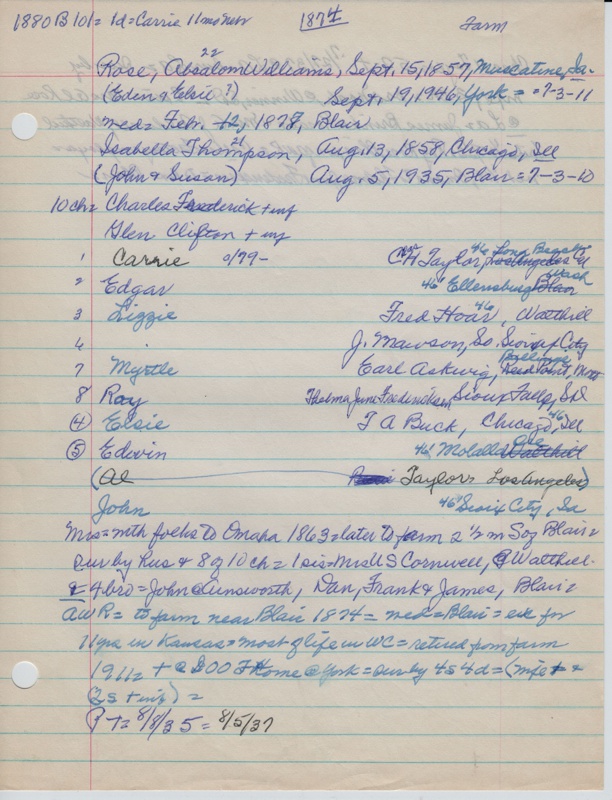 1880 B 101 = 1d = Carrie 11 mo Nebr 1874 Farm
22
Rose, Absalom Williams, Sept. 15, 1857, Muscatine, Ia.
(Eden & Elsie ?) Sept. 19, 1946, York = 7-3-11
wed = Febr. 12, 1878, Blair
21
Isabella Thompson, Aug. 13, 1858, Chicago, Ill
(John & Susan) Aug. 5, 1935, Blair = 7-3-10
10 ch = Charles Frederick + inf
Glen Clifton + inf
1 Carrie 0/79 - CH Taylor, 46 Long Beach Los Angeles Cal
2 Edgar 46 Ellensburg Wash Blair
3 Lizzie Fred Hoar 46, Walthill
6 J. Mawson, So. Sioux City
7 Myrtle Earl Askwig, Billings Mont
8 Ray Thelma June Frederickson Sioux Falls, SD
4 Elsie T A Buck, Chicago, 46 Ill
5 Edwin 46 Molalla Ore Walthill
(Al Taylor Los Angeles)
John 46 Sioux City, Ia
Mrs = with folks to Omaha 1863 = later to farm 2 1/2 m So of Blair =
sur by hus & 8 of 10 ch = 1 sis = Mrs US Cornwell, of Walthill -
& 4 bro = John Ainsworth, Dan, Frank & James, Blair =
AWR = to farm near Blair 1874 = wed = Blair = exc for
11 yrs in Kansas = most of life in WC = retired from farm
1911 = + @ IOOF Home @ York = sur by 4s 4d = (wife +
2s + inf) =
PT = 8/8/35 = 8/5/37